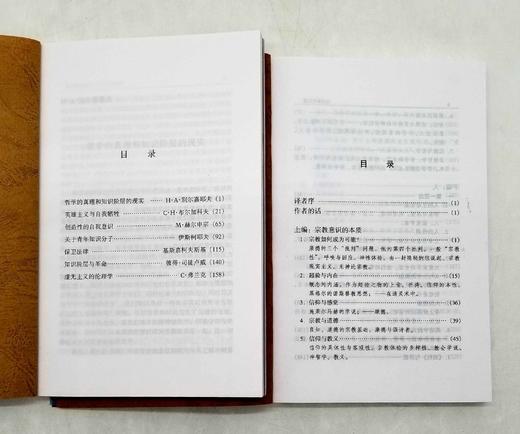 目 录
哲学的真理和知识阶层的现实 H·A·别尔嘉耶夫 (1)
英雄主义与自我牺牲 C·H·布尔加科夫 (21)
创造性的自我意识 M·赫尔申宗 (65)
关于青年知识分子 伊斯柯耶夫 (92)
保卫法律 基斯嘉科夫斯基 (115)
知识阶层与革命 彼得·司徒卢威 (140)
虚无主义的伦理学 C·弗兰克 (158)
目 录
译者序 (1)
作者的话 (1)
上编：宗教意识的本质
1 宗教如何成为可能? (1)
2 超验与内在 (15)
3 信仰与感觉 (36)
4 宗教与道德 (39)
良知。道德的宗教基础。康德与强诗者。
5 信仰与教义 (45)
信仰的具体性与客观性。宗教体验的多样性。教会学说。
神智学。教义。